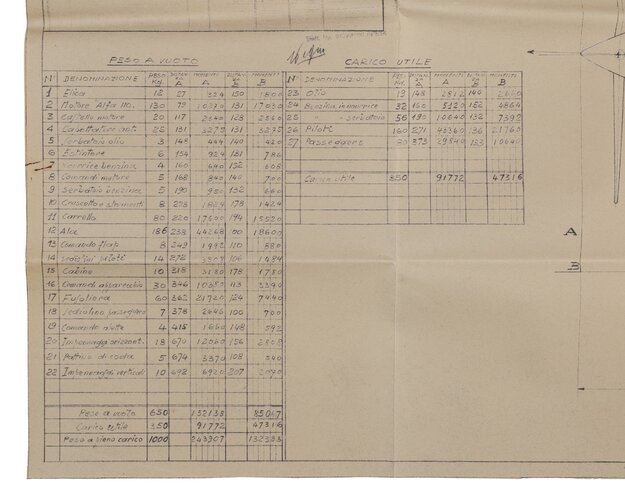 PESO A VUOTO
N° DENOMINAZIONE PESO Kg. DISTAN. A MOMENTI A DISTAN. B MOMENTI B
1 Elica 12 27 324 150 1800
2 Motore Alfa 110. 130 79 10270 131 17030
3 Castello motore 20 117 2340 128 2560
4 Carrettatore ant. 25 131 3275 131 3275
5 Serbatoio olio 3 148 444 140 420
6 Estintore 6 154 924 131 786
7 benzina 4 160 640 152 608
8 Comandi motore 5 168 840 140 700
9 Serbatoio benzina 5 190 950 132 660
10 Cruscotto e strumenti 8 228 1824 178 1424
11 Carrello 80 220 17600 194 15520
12 Ala 186 238 44268 100 18600
13 Comando flap 8 249 1992 110 880
14 Sediolini piloti 14 272 3808 106 1484
15 Cabina 10 318 3180 178 1780
16 Comandi apparecchio 30 346 10380 113 3390
17 Fusoliera 60 362 21720 124 7440
18 Sediolino passeggero 7 378 2646 100 700
19 Comando ruota 4 415 1660 148 592
20 Impennaggi orizzont. 18 670 12060 156 2808
21 Pattino di coda 5 674 3370 108 540
22 Impennaggi verticali 10 692 6920 207 2070
Peso a vuoto 650 85067
Carico utile 350 91772 47316
Peso a pieno carico 1000 243907
CARICO UTILE
N° DENOMINAZIONE PESO Kg. A MOMENTI A B MOMENTI B
23 Olio 19 148 2812 140 2660
24 Benzina in 32 160 5120 152 4864
25 " " serbatoio 56 190 10640 132 7392
26 Piloti 160 271 43360 136 21760
27 Passeggero 80 373 29840 133 10640
Carico utile 350 91772 47316
A
B